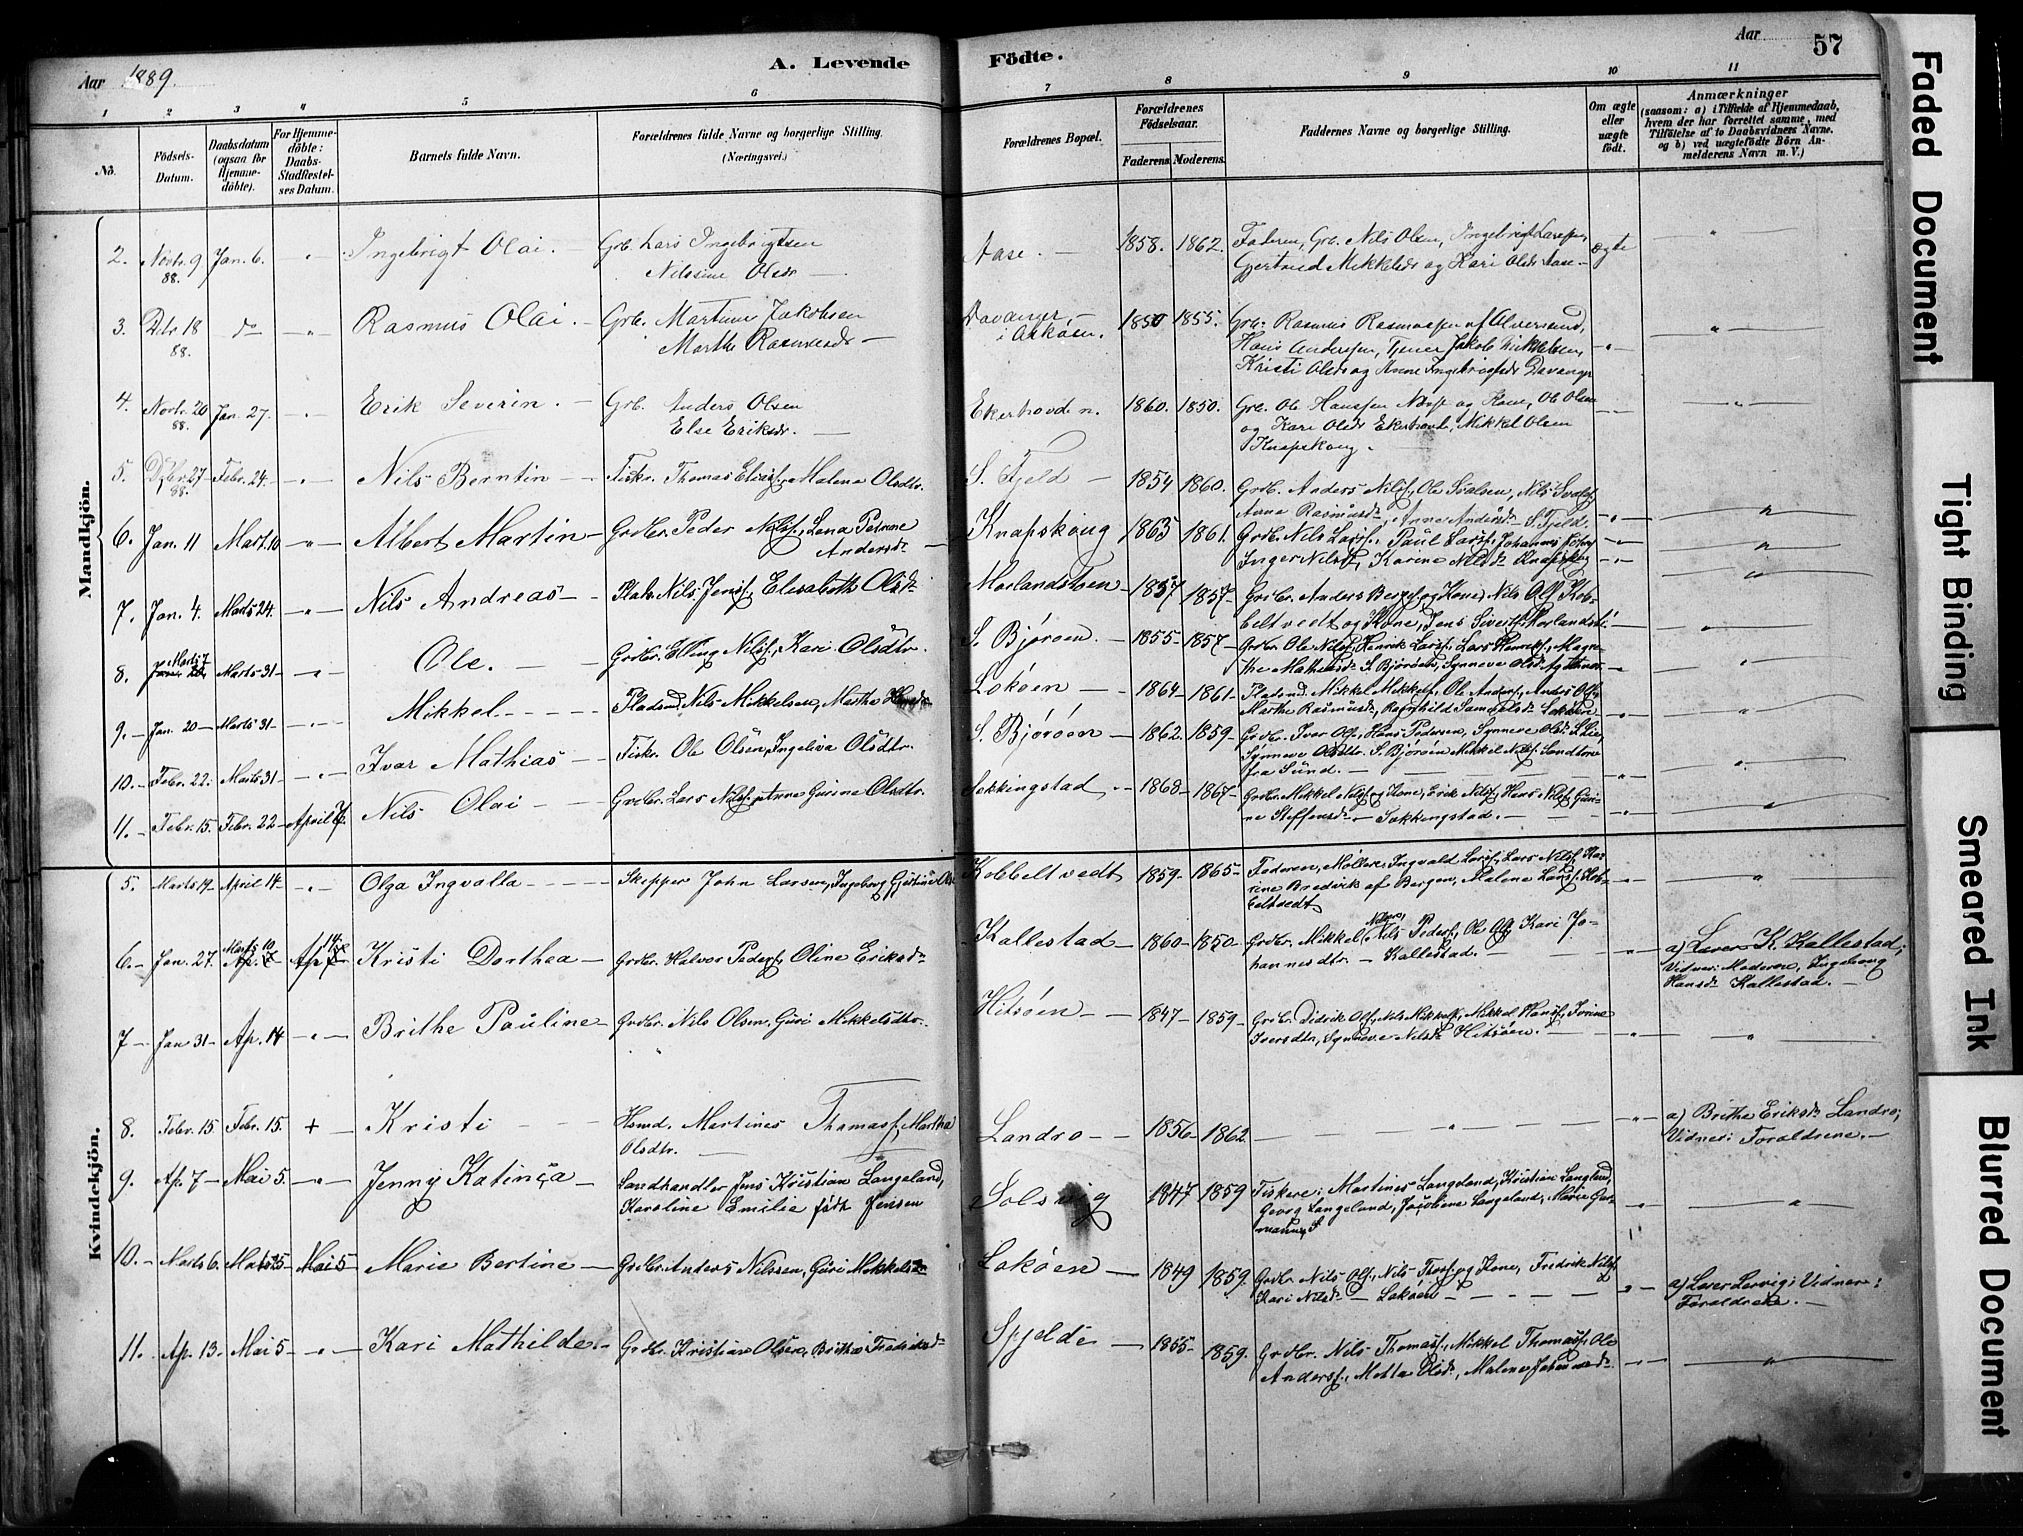 Aar 1889.
A. Levende Födte.
Aar
57
1 2 3 4 5 6 7 8 9 10 11
No.
Födsels-
Datum.
Daabsdatum
(ogsaa for
Hjemme-
döbte).
For Hjemme-
döbte:
Daabs-
Stadfæstel-
ses Datum.
Barnets fulde Navn.
Forældrenes fulde Navne og borgerlige Stilling.
(Næringsvei.)
Forældrenes Bopæl.
Forældrenes
Födselsaar.
Faderens. Moderens.
Faddernes Navne og borgerlige Stilling.
Om ægte
eller
uægte
födt.
Anmærkninger
(saasom: a) i Tilfælde af Hjemmedaab,
hvem der har forrettet samme, med
Tilföielse af to Daabsvidners Navne.
og b) ved uægtefödte Börn An-
melderens Navn m. V.)
Mandkjön.
2. Novbr. 9 Jan. 6. " Ingebrigt Olai. — Grb. Lars Ingebrigtsen Aase. — 1858. 1862. Faderen, Grb. Nils Olsen, Ingebrigt Larssen, ægte "
88. Nilsine Olsdr — Gjertrud Mikkelsdr og Kari Olsdr Aase —
3. Dcbr 18 do " Rasmus Olai. — Grb. Martinus Jakobsen Davanger, 1850 1855. Grb. Rasmus Rasmussen af Alversund, "
88. Marthe Rasmusdr — i Askøen. Hans Anderssen, Tjener Jakob Mikkelsen,
Kristi Olsdr og Anne Ingebrigtsdr Davanger
4. Novbr. 20 Jan. 27. " Erik Severin. — Grb. Anders Olsen Ekerhovd n. 1860. 1850. Grb. Ole Hanssen og Kone, Ole Olsen "
88. Else Eriksdr. — og Kari Olsdr Ekerhovd, Mikkel Olsen
Knapskoug —
5. Dcbr. 27 Febr. 24. " Nils Berntin — Fiskr. Thomas Eliass., Malene Olsdtr. S. Fjeld — 1854 1860. Grdbr. Anders Nilss., Ole Sjalsen, Nils
88. Anna Rasmusdr, Anne Andersdr S. Fjeld. "
6. Jan. 11 Mart. 10 " Albert Martin — Grdbr. Peder Nilss., Lena Petrine Knapskoug 1863 1861. Grdbr. Nils Larss., Paul Larss., Johannes
Andersdr — Inger Nilsdr, Karine Nilsdr Knapskog "
7. Jan. 4. Marts 24. " Nils Andreas — Plads Nils Jenss., Elisabeth Olsdr Morlandstøen 1857 1857 — Grdbr. Anders Berges. og Kone, Nils Ols. Kob-
beltvedt og Kone, Jens Siverts. Morlandst. "
8. Marts 7 Marts 31 — " Ole. — Grdbr. Elling Nilss., Kari Olsdtr. S. Bjørøen. — 1855 — 1857 — Grdbr. Ole Nilss., Henrik Larss., Lars Henriks., Magre-
the Mathiasdr S. Bjørøen, Synneve Olsdr "
9. — Jan. 20 — Marts 31 — " Mikkel — Pladsmd Nils Mikkelsen, Marthe Lokøen — 1864 — 1861 — Pladsmd. Mikkel Mikkels., Ole Anders., Anders Ols.,
Marthe Rasmusdr, Ragnhild Samuelsdr Lokøen — "
10. — Febr. 22. Marts 31 — " Ivar Mathias — Fiskr. Ole Olsen, Ingeliva Olsdtr. S. Bjørøen — 1862 — 1859 — Grdbr. Ivar Ols., Hans Pedersen, Synneve Olsdr
Synneve Olsdtr. S. Bjørøen, Mikkel Nilss.
fra Sund. — "
11. — Febr. 15. Febr. 22 — April Nils Olai — Grdbr. Lars Nilss., Anne Gurine Olsdtr. Sekkingstad — 1868 — 1867 — Grdbr. Mikkel Nilss. og Kone, Erik Nilss., Hans Nilss., Guri-
ne Steffensdr — Sekkingstad. — "
Kvindekjön.
5. Marts 19. April 14 — " Olga Ingvalla — Skipper John Larsen, Ingeborg Kobbeltvedt 1859 — 1865 — Faderen, Møller Ingvald Larss., Lars Nilss., Ka-
rine Bredvik af Bergen, Malene Kob-
beltvedt "
6. — Jan. 27. Marts 10 Ap. 14 Kristi Dorthea — Grdbr. Halvor Peders., Oline Eriksdr Kallestad — 1860 — 1850 — Grdbr. Mikkel Nilss., Nils Peders., Ole Ols., Kari Jo-
hannesdtr. — Kallestad. — " a) Lærer K. Kallestad;
Vidner: Moderen, Ingeborg
Hansdr Kallestad. —
7 — Jan 31 — Ap. 14 — " Brithe Pauline — Grdbr. Nils Olsen, Guri Mikkelsdtr. Hitsøen — 1847 — 1859 — Grdbr. Didrik Ols., Nils Mikkels., Mikkel Hanss., Sirine
Iversdtr., Synneve Nilsdr Hitsøen. — "
8. Febr. 15 Febr. 15. + — Kristi — Hsmd. Martines Thomass., Martha Landro — 1856 — 1862 — " — " a) Brithe Eriksdr Landro;
Olsdtr. — Vidner: Forældrene. —
9. Ap. 7 — Mai 5. — " Jenny Katinca — Landhandler Jens Kristian Langeland, Solsvig 1847 1859 Fiskere: Martines Langeland, Kristian Langeland,
Karoline Emilie født Jensen Georg Langeland, Jacobine Langeland, Marie "
10. — Marts 6. Marts 25 Mai 5 Marie Bertine — Grdbr. Anders Nilssen, Guri Mikkelsdr Lokøen — 1849 1859. Grdbr. Nils Ols., Nils og Kone, Fredrik Nilss.,
Kari Nilsdr — Lokøen — " a) Lærer Lervig; Vidner:
Forældrene. —
11. — Ap. 13. Mai 5 — " Kari Mathilde — Grdbr. Kristian Olsen, Brithe Fredriksdr Spjelde — 1855 — 1859. Grdbr. Nils Thomass., Mikkel Thomass., Ole
Anderss., Metta Olsdr, Malene Johannesdr. "
Faded Document
Tight Binding
Smeared Ink
Blurred Document